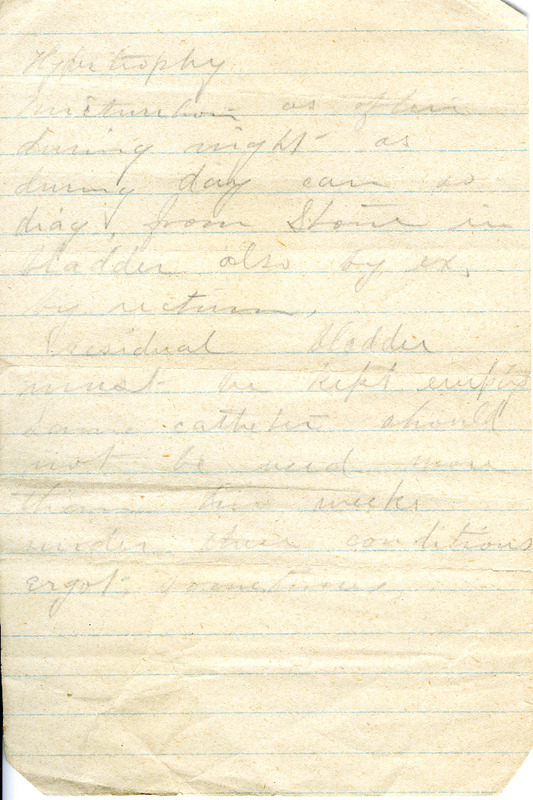 Hypertrophy
micturition as often
during night as
during day can so
diag, from Stone in
bladder also by ex,
by rectum,
residual bladder
must be kept empty
Same catheter should
not be used more
than two weeks
under these conditions
ergot, sometimes,